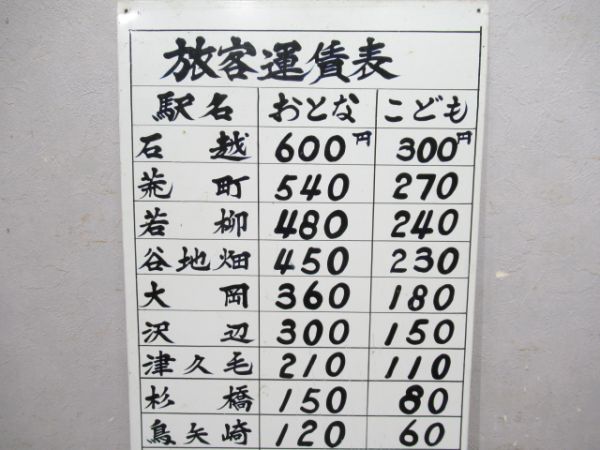 旅客運賃表
駅名 おとな こども
石越 600円 300円
荒町 540 270
若柳 480 240
谷地畑 450 230
大岡 360 180
沢辺 300 150
津久毛 210 110
杉橋 150 80
鳥矢崎 120 60